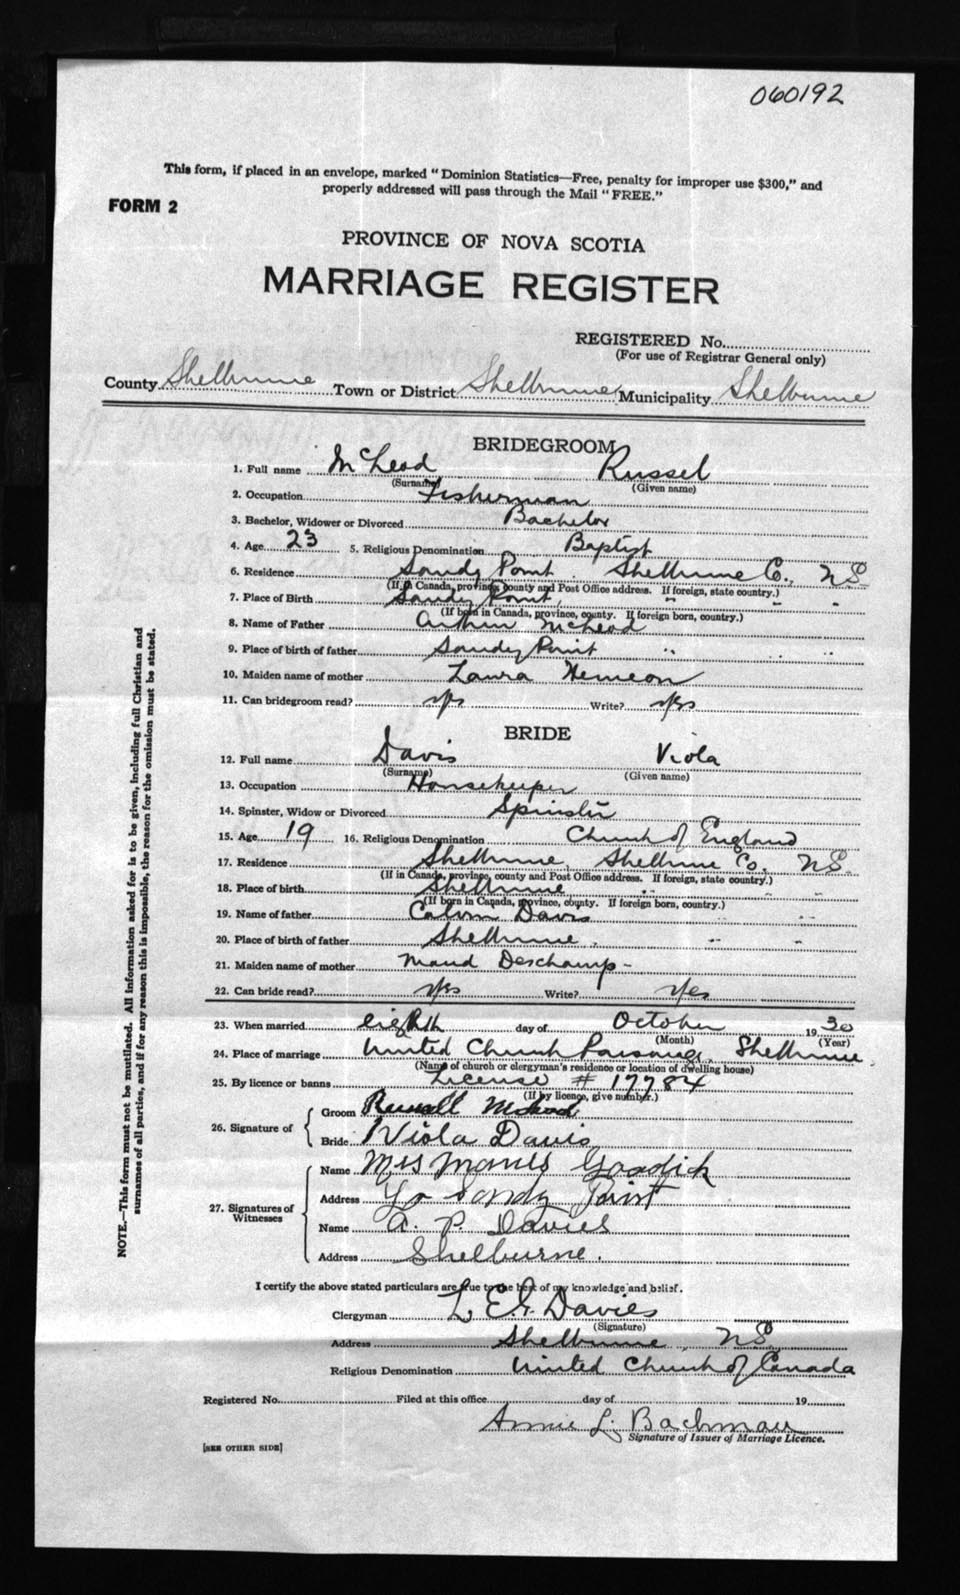 060192
This form, if placed in an envelope, marked "Dominion Statistics—Free, penalty for improper use $300," and
properly addressed will pass through the Mail "FREE."
FORM 2
PROVINCE OF NOVA SCOTIA
MARRIAGE REGISTER
REGISTERED No.
(For use of Registrar General only)
County Shelburne Town or District Shelburne Municipality Shelburne
BRIDEGROOM
1. Full name McLeod Russel
(Surname) (Given name)
2. Occupation Fisherman
3. Bachelor, Widower or Divorced Bachelor
4. Age 23 5. Religious Denomination Baptist
6. Residence Sandy Point Shelburne Co., NS
(If in Canada, province, county and Post Office address. If foreign, state country.)
7. Place of Birth Sandy Point, " " "
(If born in Canada, province, county. If foreign born, country.)
8. Name of Father Arthur McLeod
9. Place of birth of father Sandy Point " " "
10. Maiden name of mother Laura Hemeon
11. Can bridegroom read? yes Write? yes
BRIDE
12. Full name Davis Viola
(Surname) (Given name)
13. Occupation Housekeeper
14. Spinster, Widow or Divorced Spinster
15. Age 19 16. Religious Denomination Church of England
17. Residence Shelburne, Shelburne Co, NS.
(If in Canada, province, county and Post Office address. If foreign, state country.)
18. Place of birth Shelburne " " "
(If born in Canada, province, county. If foreign born, country.)
19. Name of father Calvin Davis
20. Place of birth of father Shelburne, " "
21. Maiden name of mother Maud Deschamp-
22. Can bride read? yes Write? yes
23. When married eighth day of October 1930
(Month) (Year)
24. Place of marriage United Church Parsonage, Shelburne,
(Name of church or clergyman's residence or location of dwelling house)
25. By licence or banns License # 17784
(If by licence, give number.)
26. Signature of Groom Russell McLeod
Bride Viola Davis
27. Signatures of Witnesses Name Mrs
Address Lr Sandy Point
Name A. P. Davies
Address Shelburne.
I certify the above stated particulars are true to the best of my knowledge and belief.
Clergyman Davies
(Signature)
Address Shelburne, NS
Religious Denomination United Church of Canada
Registered No. Filed at this office day of 19
Annie L. Bachman
Signature of Issuer of Marriage Licence.
[SEE OTHER SIDE]
NOTE.—This form must not be mutilated. All information asked for is to be given, including full Christian and
surnames of all parties, and if for any reason this is impossible, the reason for the omission must be stated.